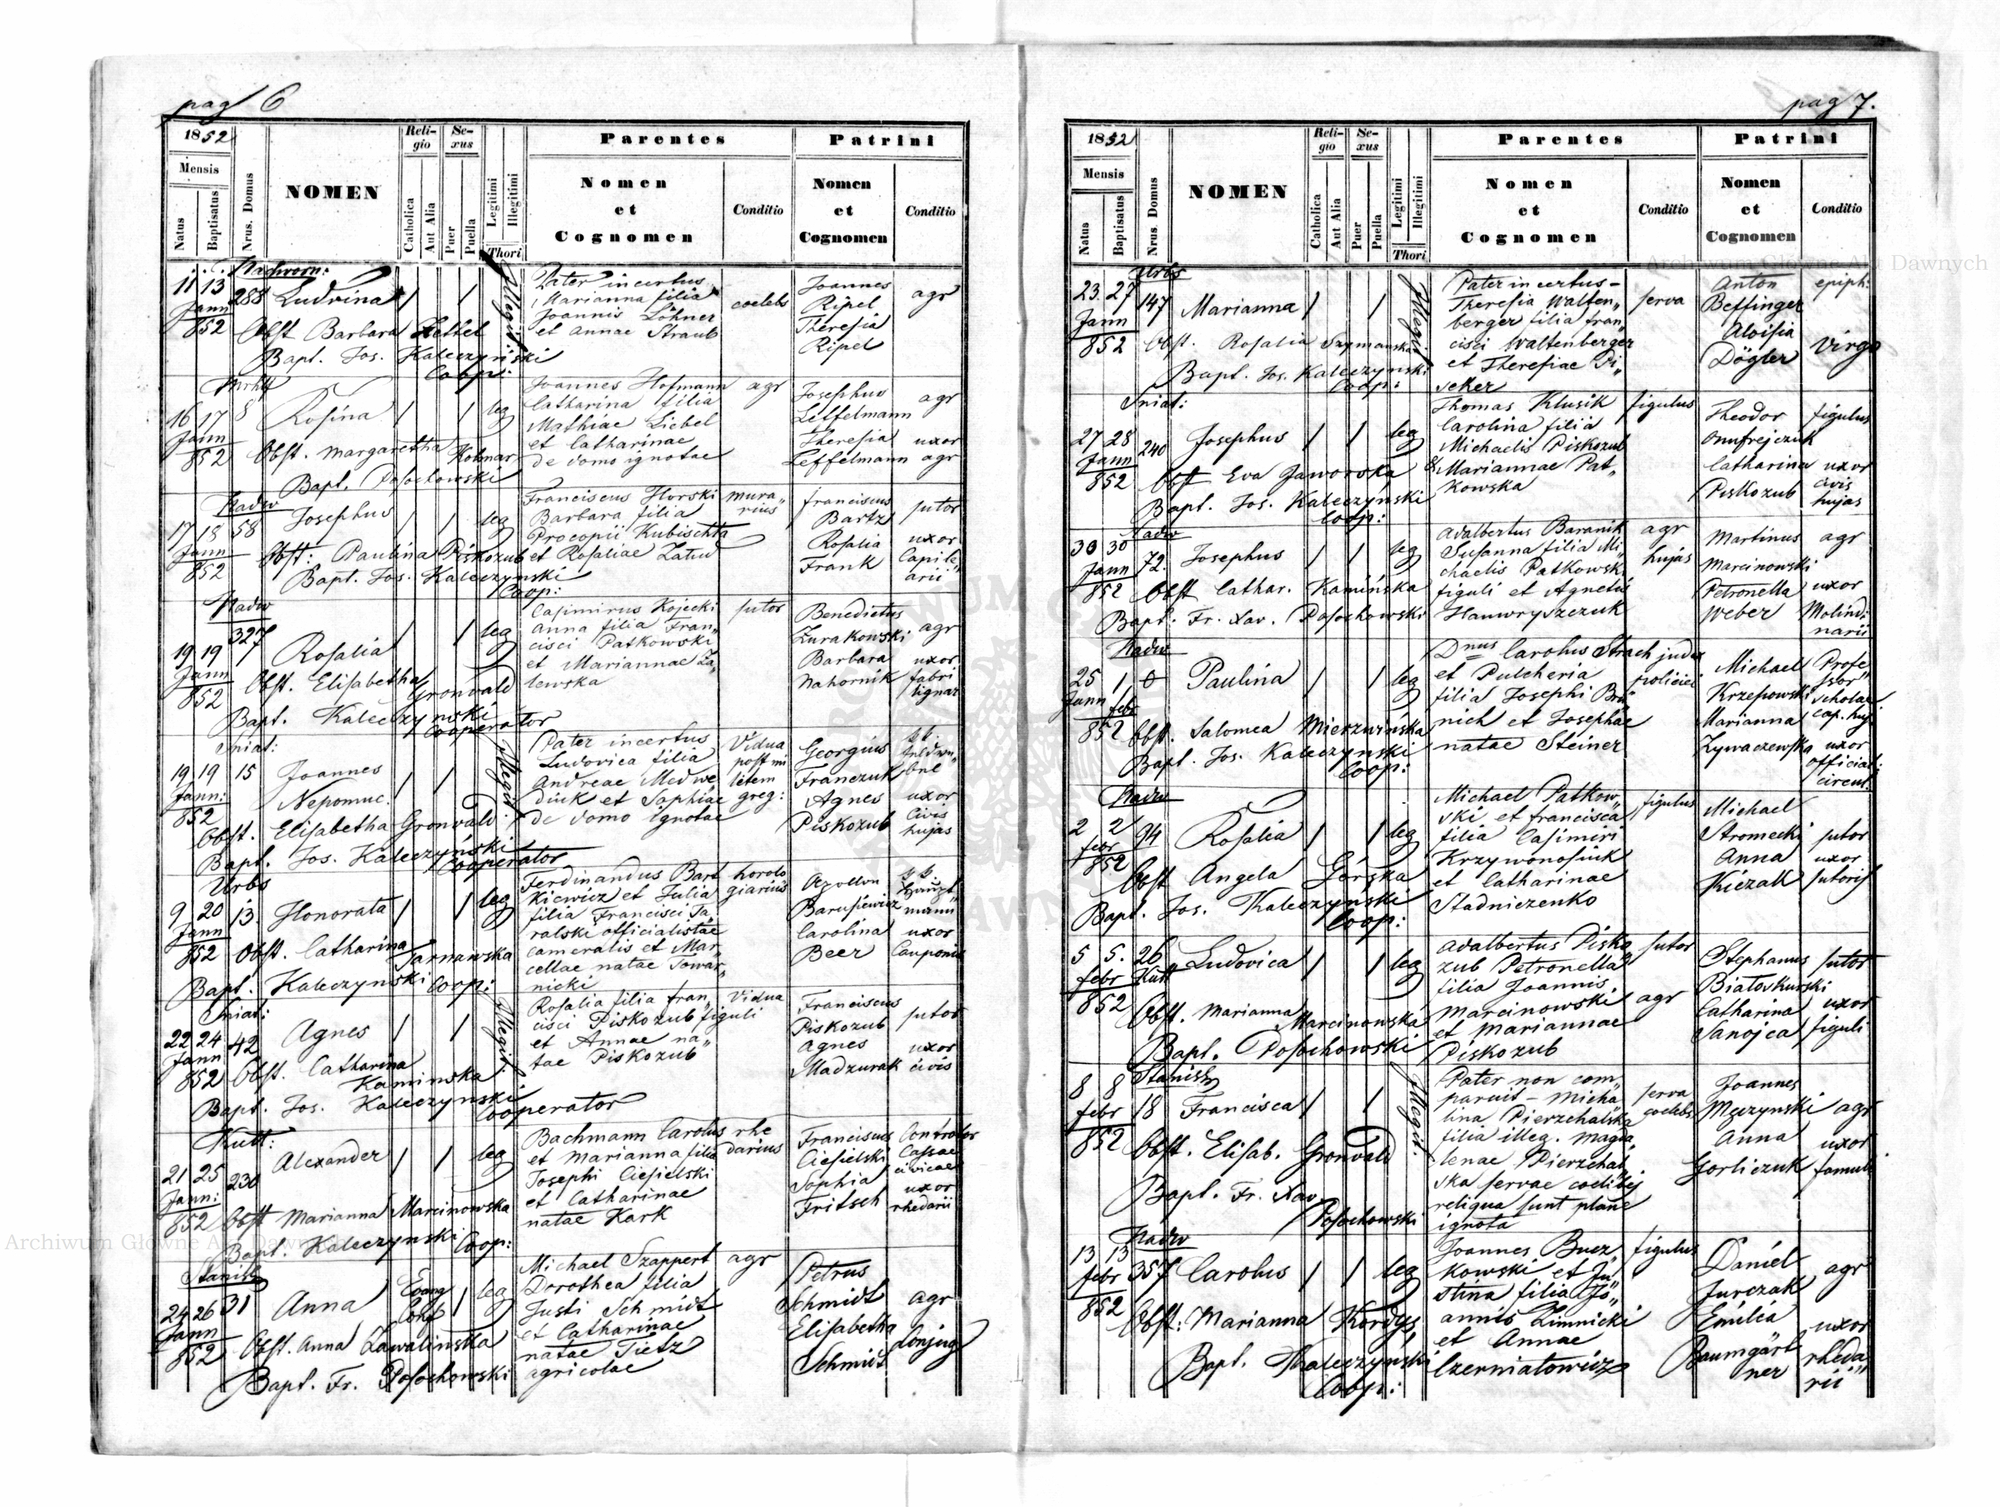 pag 6
1852
Mensis
Natus
Baptisatus
Nrus. Domus
NOMEN
Reli-
gio
Catholica
Aut Alia
Se-
xus
Puer
Puella
Legitimi
Illegitimi
Thori
Parentes
Nomen
et
Cognomen
Conditio
Patrini
Nomen
et
Cognomen
Conditio
11 13 288 Ludvina / / Illegit
Jann
852
Obst Barbara Hettel
Bapt. Jos. Kaleczyński
Coop:
Pater incertus
Marianna filia
Joannis Löhner
et Annae Straub
coelebs
Joannes
Ripel
Theresia
Ripel
agr
16 17 8 Rosina / / leg
Jann
852
Obst. Margaretha Kotmar
Bapt. Posochowski
Joannes Hofmann agr
Catharina filia
Mathiae Liebel
et Catharinae
de domo ignotae
Josephus
Leffelmann
Theresia
Leffelmann
agr
uxor
agr
Nadw
17 18 58 Josephus / / leg
Jann
852
Obst: Paulina Piskozub
Bapt. Jos. Kaleczynski
Coop:
Franciscus Horski
Barbara filia
Procopii Kubischta
et Rosaliae Latud
mura„
rius
Franciscus
Bartz
Rosalia
Frank
sutor
uxor
Capite„
arii
Nadw
327
19 19 Rosalia / / leg
Jann
852
Obst. Elisabetha Gronvald
Bapt. Kaleczynski
Cooperator
Casimirus Kojecki sutor
Anna filia Fran„
cisci Patkowski
et Mariannae Za„
lewska
Benedictus
Zurakowski
Barbara
Nahornik
agr
uxor
fabri
lignar
Sniat:
19 19 15 Joannes / / Illegit
Jann:
852
Nepomuc.
Obst. Elisabetha Gronvald
Bapt. Jos. Kaleczyński
Cooperator
Pater incertus
Ludovica filia
Andreae Medwe
diuk et Sophiae
de domo ignotae
Vidua
post mi
litem
greg:
Georgius
Franczuk
Agnes
Piskozub
uxor
Civis
hujas
Urbs
9 20 13. Honorata / / leg
Jann
852
Obst. Catharina Tarnawska
Bapt. Kaleczynski Coop:
Ferdinandus Bart
kiewicz et Julia
filia Francisci Ta
ralski officialistae
cameralis et Mar„
cellae natae Towar„
nicki
horolo
giarius
Apollon
Barusiewicz
Carolina
Beer
uxor
Cauponis
Sniat:
22 24 42 Agnes / / Illegit:
Jann
852
Obst. Catharina
Kaminska
Bapt. Jos. Kaleczynski
Cooperator
Rosalia filia Fran„
cisci Piskozub
et Annae na„
tae Piskozub
Vidua
figuli
Franciscus
Piskozub
Agnes
Madzurak
sutor
uxor
civis
Kutt:
21 25 230 Alexander / / leg
Jann:
852
Obst Marianna Marcinowska
Bapt. Kaleczynski Coop:
Bachmann Carolus
et Marianna filia
Josephi Ciesielski
et Catharinae
natae Kark
rhe
darius
Franciscus
Ciesielski
Sophia
Fritsch
Controlor
Cassae
civicae
uxor
rhedarii
Stanisl
24 26 31 Anna Evang Conf / leg
Jann
852
Obst. Anna Zawalinska
Bapt. Fr. Posochowski
Michael Szappert agr
Dorothea filia
Justi Schmidt
et Catharinae
natae Tietz
agricolae
Petrus
Schmidt
Elisabetha
Schmidt
agr
Conjug
pag 7.
1852
Mensis
Natus
Baptisatus
Nrus. Domus
NOMEN
Reli-
gio
Catholica
Aut Alia
Se-
xus
Puer
Puella
Legitimi
Illegitimi
Thori
Parentes
Nomen
et
Cognomen
Conditio
Patrini
Nomen
et
Cognomen
Conditio
Urbs
23. 27 147 Marianna / / Illegit
Jann
852
Obst. Rosalia Szymanska
Bapt. Jos. Kaleczynski
Coop:
Pater incertus –
Theresia Walten„
berger filia Fran„
cisci Waltenberger
et Theresiae Pi„
seker
serva
Anton
Beffinger
Aloisia
Dögler
epiph:
Virgo
Sniat:
27 28 240 Josephus / / leg
Jann
852
Obst Eva Jaworska
Bapt. Jos. Kaleczynski
Coop:
Thomas Klusik
Carolina filia
Michaelis Piskozub
& Mariannae Pat„
kowska
figulus
Theodor
Onufrejczuk
Catharina
Piskozub
figulus
uxor
civis
hujas
Nadw
30 30 72. Josephus / / leg
Jann
852
Obst Cathar. Kamińska
Bapt. Fr. Xav. Posochowski
Adalbertus Baranik
Susanna filia Mi„
chaelis Patkowski
figuli et Agnetis
Hawryszczuk
agr
hujas
Martinus
Marcinowski
Petronella
Weber
agr
uxor
Molind:
narii
Nadw
25 1 0 Paulina / / leg
Jann febr
852
Obst. Salomea Mierzwinska
Bapt. Jos. Kaleczynski
Coop:
Dnus Carolus Strach
et Pulcheria
filia Josephi Brü
nich et Josephae
natae Steiner
judex
policiei
Michael
Krzepowski
Marianna
Zywaczewska
Profe
sor
scholae
cap. huj
uxor
official:
circul:
Nadw
2 2 94 Rosalia / / leg
febr
852
Obst Angela Górska
Bapt. Jos. Kaleczynski
Coop:
Michael Patkow„
ski et Francisca
filia Casimiri
Krzywonosiuk
et Catharinae
Stadniczenko
figulus
Michael
Stromecki
Anna
Kiczak
sutor
uxor
sutoris
5 5. 26 Ludovica / / leg
febr Kutt
852
Obst. Marianna Marcinowska
Bapt. Posochowski
Adalbertus Pisko
zub Petronella
filia Joannis
Marcinowski
et Mariannae
Piskozub
sutor
agr
Stephanus
Białoskurski
Catharina
Sanojca
sutor
uxor
figuli
Stanisl
8 8 18 Francisca / / Illegit.
febr
852
Obst. Elisab. Gronvald
Bapt. Fr. Xav.
Posochowski
Pater non com„
paruit – Micha
lina Pierzchalska
filia illeg. Magda
lenae Pierzchal„
ska servae coelibis
reliqua sunt plane
ignota
serva
coelebs
Joannes
Męczynski
Anna
Gorliczuk
agr
uxor
famuli
Nadw
13 13 357 Carolus / / leg
febr
852
Obst: Marianna Kordys
Bapt. Kaleczynski
Coop:
Joannes Bucz„
kowski et Ju„
stina filia Jo„
annis Zimnicki
et Annae
Czerniatowicz
figulus
Daniel
Jurczak
Emilia
Baumgärt
ner
agr
uxor
rheda„
rii
Archiwum Główne Akt Dawnych
Archiwum Główne Akt Dawnych